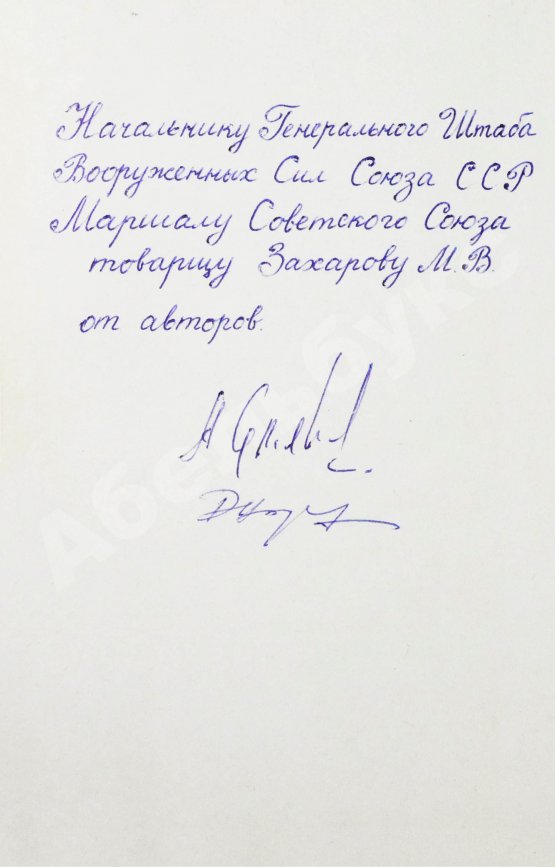 Начальнику Генерального Штаба
Вооруженных Сил Союза ССР
Маршалу Советского Союза
товарищу Захарову М.В.
от авторов.